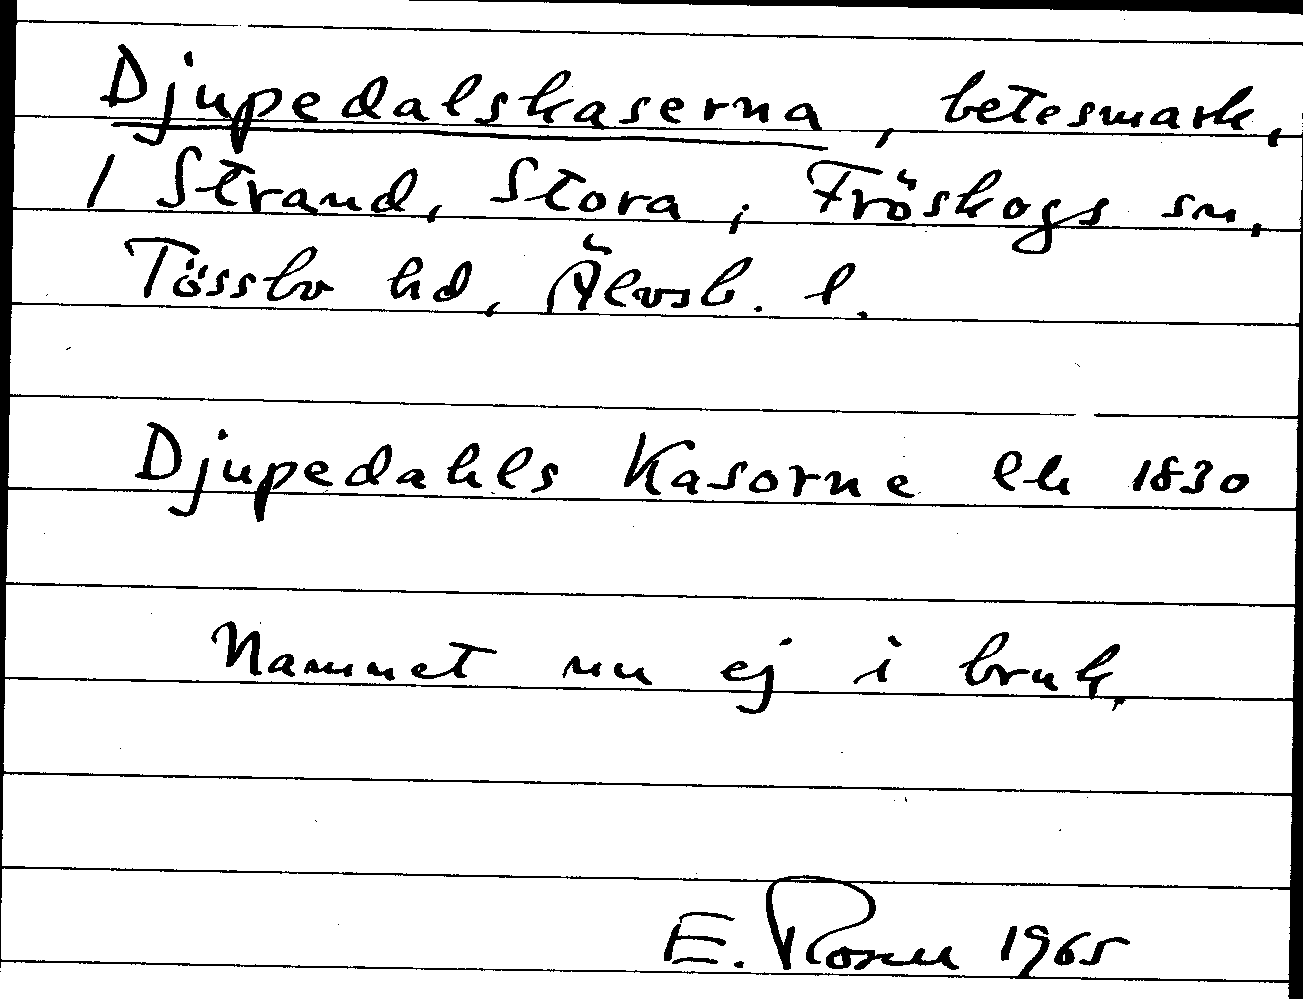 Djupedalskaserna, betesmark,
/ Strand, Stora, Fröskogs sn,
Tössbo hd, Älvsb. l.
Djupedahls Kasorne lh 1830
Namnet nu ej i bruk.
E. Rosen 1965